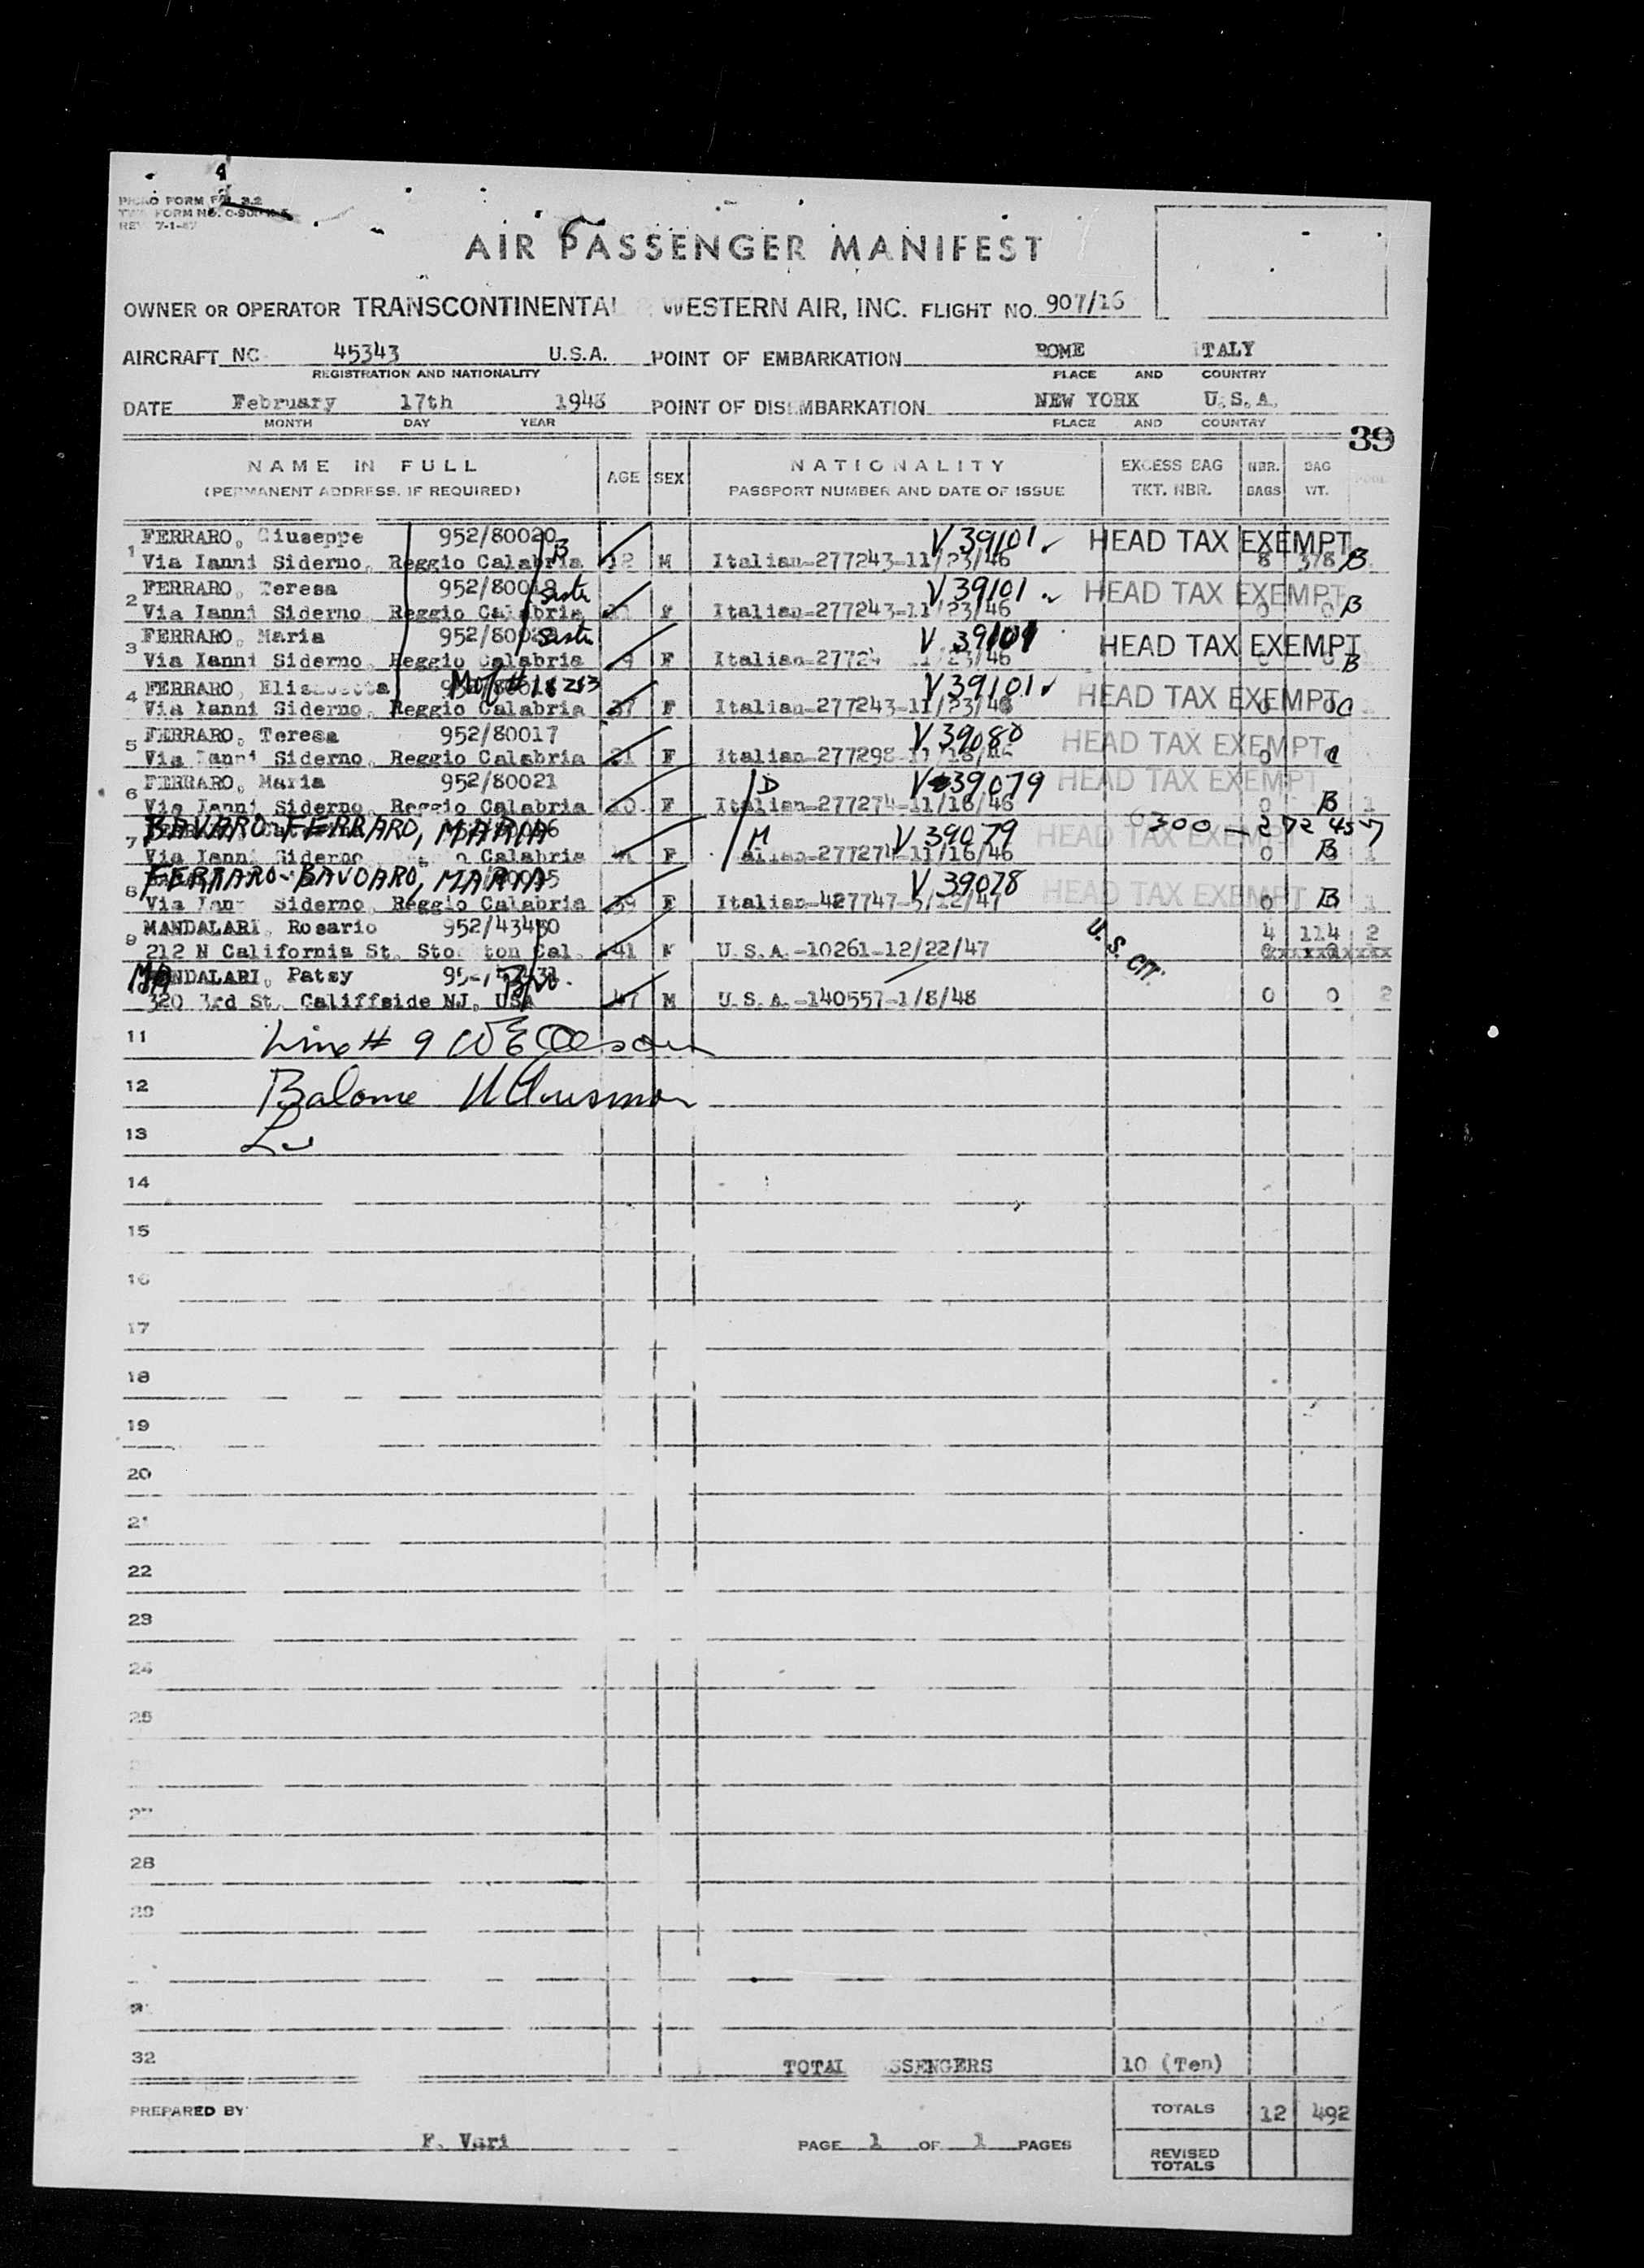 4
FORM NO.
REV 7-1-47
AIR PASSENGER MANIFEST
OWNER OR OPERATOR TRANSCONTINENTAL & WESTERN AIR, INC. FLIGHT NO. 907/16
AIRCRAFT NC 45343 U.S.A. POINT OF EMBARKATION ROME ITALY
REGISTRATION AND NATIONALITY PLACE AND COUNTRY
DATE February 17th 1948 POINT OF DISEMBARKATION NEW YORK U.S.A.
MONTH DAY YEAR PLACE AND COUNTRY
39
NAME IN FULL AGE SEX NATIONALITY EXCESS BAG NBR. BAG
(PERMANENT ADDRESS, IF REQUIRED) PASSPORT NUMBER AND DATE OF ISSUE TKT. NBR. BAGS WT.
FERRARO, Giuseppe 952/80020 V39101 HEAD TAX EXEMPT
1 Via Ianni Siderno, Reggio Calabria B 12 M Italian-277243-11/23/46 8 378 B
FERRARO, Teresa Sister V39101 HEAD TAX EXEMPT
2 Via Ianni Siderno, Reggio Calabria F Italian-277243-11/23/46 0 0 B
FERRARO, Maria Sister V 39101 HEAD TAX EXEMPT
3 Via Ianni Siderno, Reggio Calabria 9 F B
FERRARO, V39101 HEAD TAX EXEMPT
4 Via Ianni Siderno, Reggio Calabria 37 F Italian-277243-11/23/46 0 0 C
FERRARO, Teresa 952/80017 V39080 HEAD TAX EXEMPT
5 Via Ianni Siderno, Reggio Calabria 21 F Italian-277298-11/16/46 0 C
FERRARO, Maria 952/80021 D V 39079 HEAD TAX EXEMPT
6 Via Ianni Siderno, Reggio Calabria 10 F Italian-277274-11/16/46 0 B 1
BAVARO-FERRARO, MARIA M V 39079 HEAD TAX EXEMPT 0300-272457
7 Via Ianni Siderno Calabria F Italian-277274-11/16/46 0 B 1
FERRARO-BAVOARO, MARIA V 39078 HEAD TAX EXEMPT
8 Via Ianni Siderno, Reggio Calabria 39 F Italian-427747-5/12/47 0 B 1
MANDALARI, Rosario U.S. CIT. 4 114 2
9 212 N California St. Stockton Cal. 41 U.S.A.-10261-12/22/47
MANDALARI, Patsy
320 3rd St. Califfside NJ, USA 47 M U.S.A.-140557-1/8/48 0 0 2
11 Line # 9
12
13
14
15
16
17
18
19
20
21
22
23
24
25
27
28
29
32 TOTAL PASSENGERS 10 (Ten)
PREPARED BY TOTALS 12 492
F. Vari PAGE 1 OF 1 PAGES REVISED
TOTALS